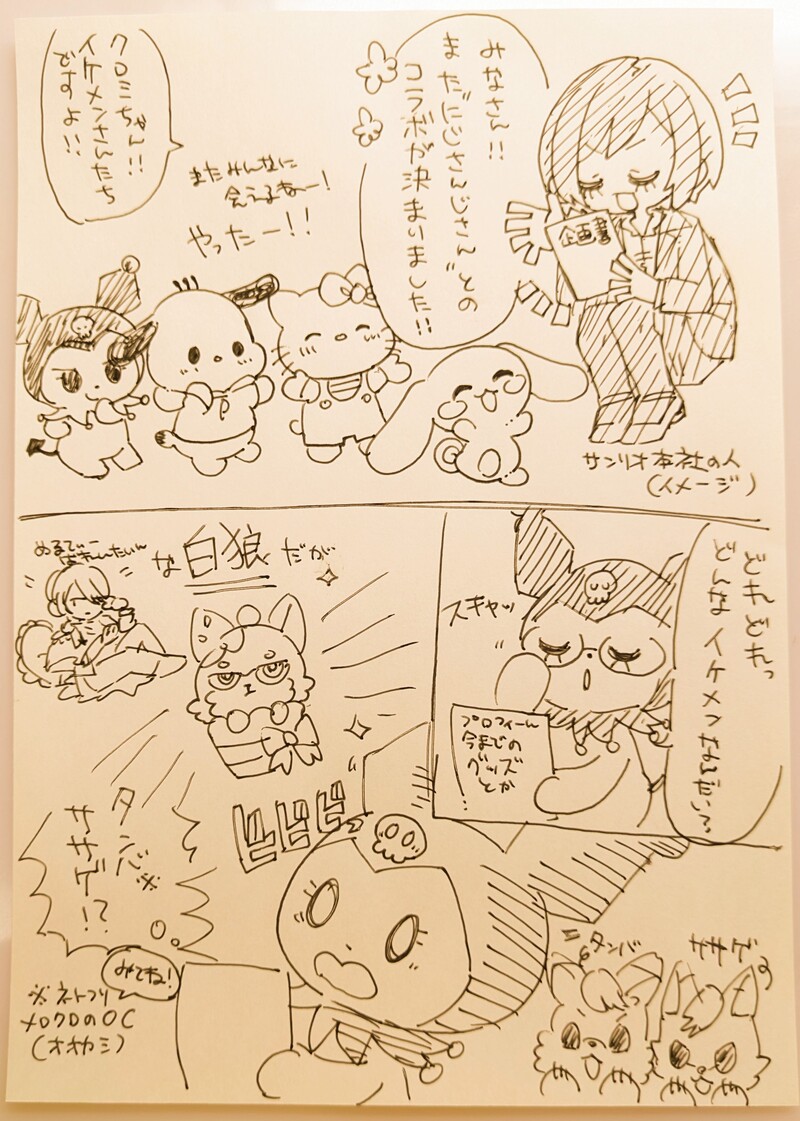 みなさん!!
またにじさんじさんとの
コラボが決まりました!!
企画書
サンリオ本社の人
(イメージ)
またみんなに
会えるねー!
やったー!!
クロミちゃん!!
イケメンさんたち
ですよ!!
どれどれっ
どんなイケメンなんだい?
スチャッ
プロフィール
今までの
グッズ
とか
な白狼だが
ビビビ
タンバ※
ササゲ!?
みてね!
※ネトフリ
メロクロのOC
(オオカミ)
タンバ
ササゲ